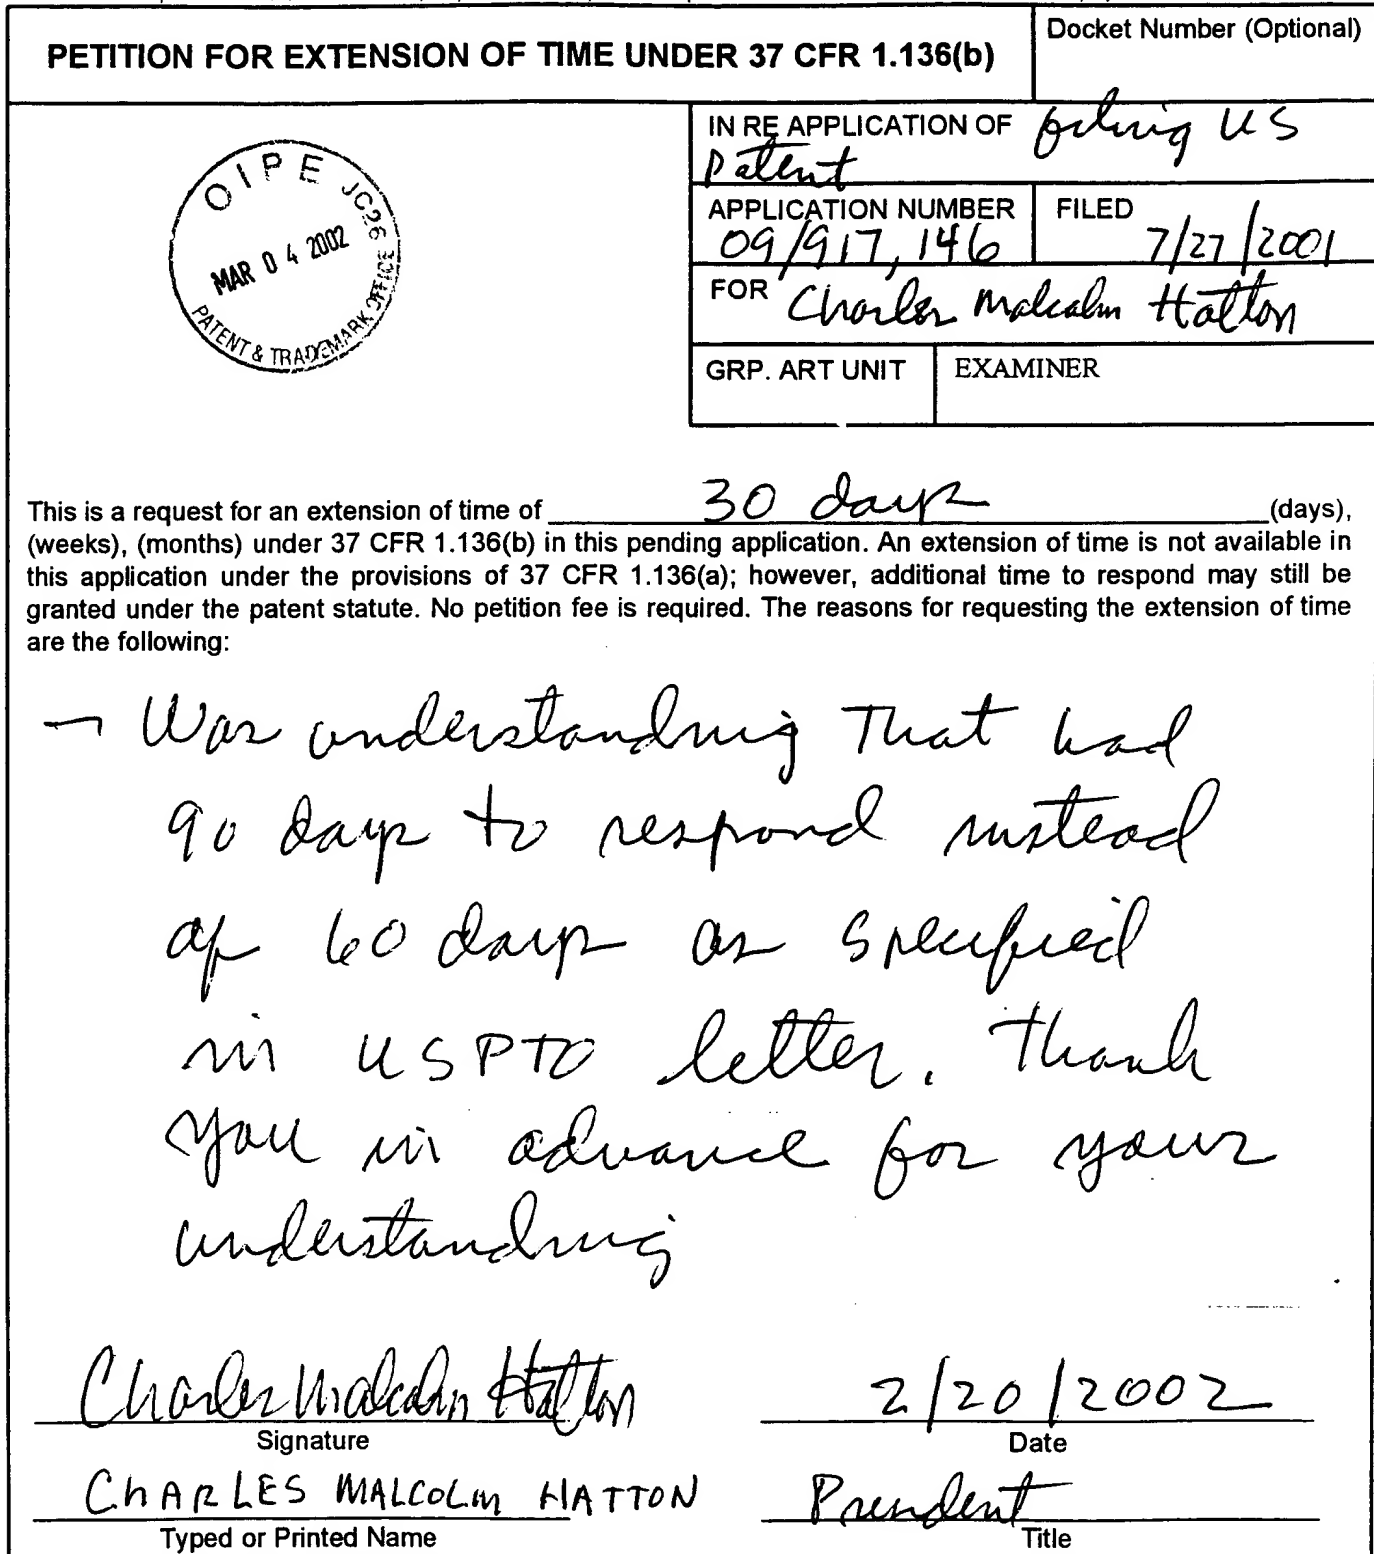 PETITION FOR EXTENSION OF TIME UNDER 37 CFR 1.136(b)
Docket Number (Optional)
OIPE JC26
MAR 04 2002
PATENT & TRADEMARK OFFICE
IN RE APPLICATION OF filing US
Patent
APPLICATION NUMBER
09/917,146
FILED
7/27/2001
FOR Charles Malcolm Hatton
GRP. ART UNIT
EXAMINER
This is a request for an extension of time of 30 days (days),
(weeks), (months) under 37 CFR 1.136(b) in this pending application. An extension of time is not available in
this application under the provisions of 37 CFR 1.136(a); however, additional time to respond may still be
granted under the patent statute. No petition fee is required. The reasons for requesting the extension of time
are the following:
- Was understanding That had
90 days to respond instead
of 60 days as specified
in USPTO letter. Thank
you in advance for your
understanding
Charles Malcolm Hatton
Signature
2/20/2002
Date
CHARLES MALCOLM HATTON
Typed or Printed Name
President
Title